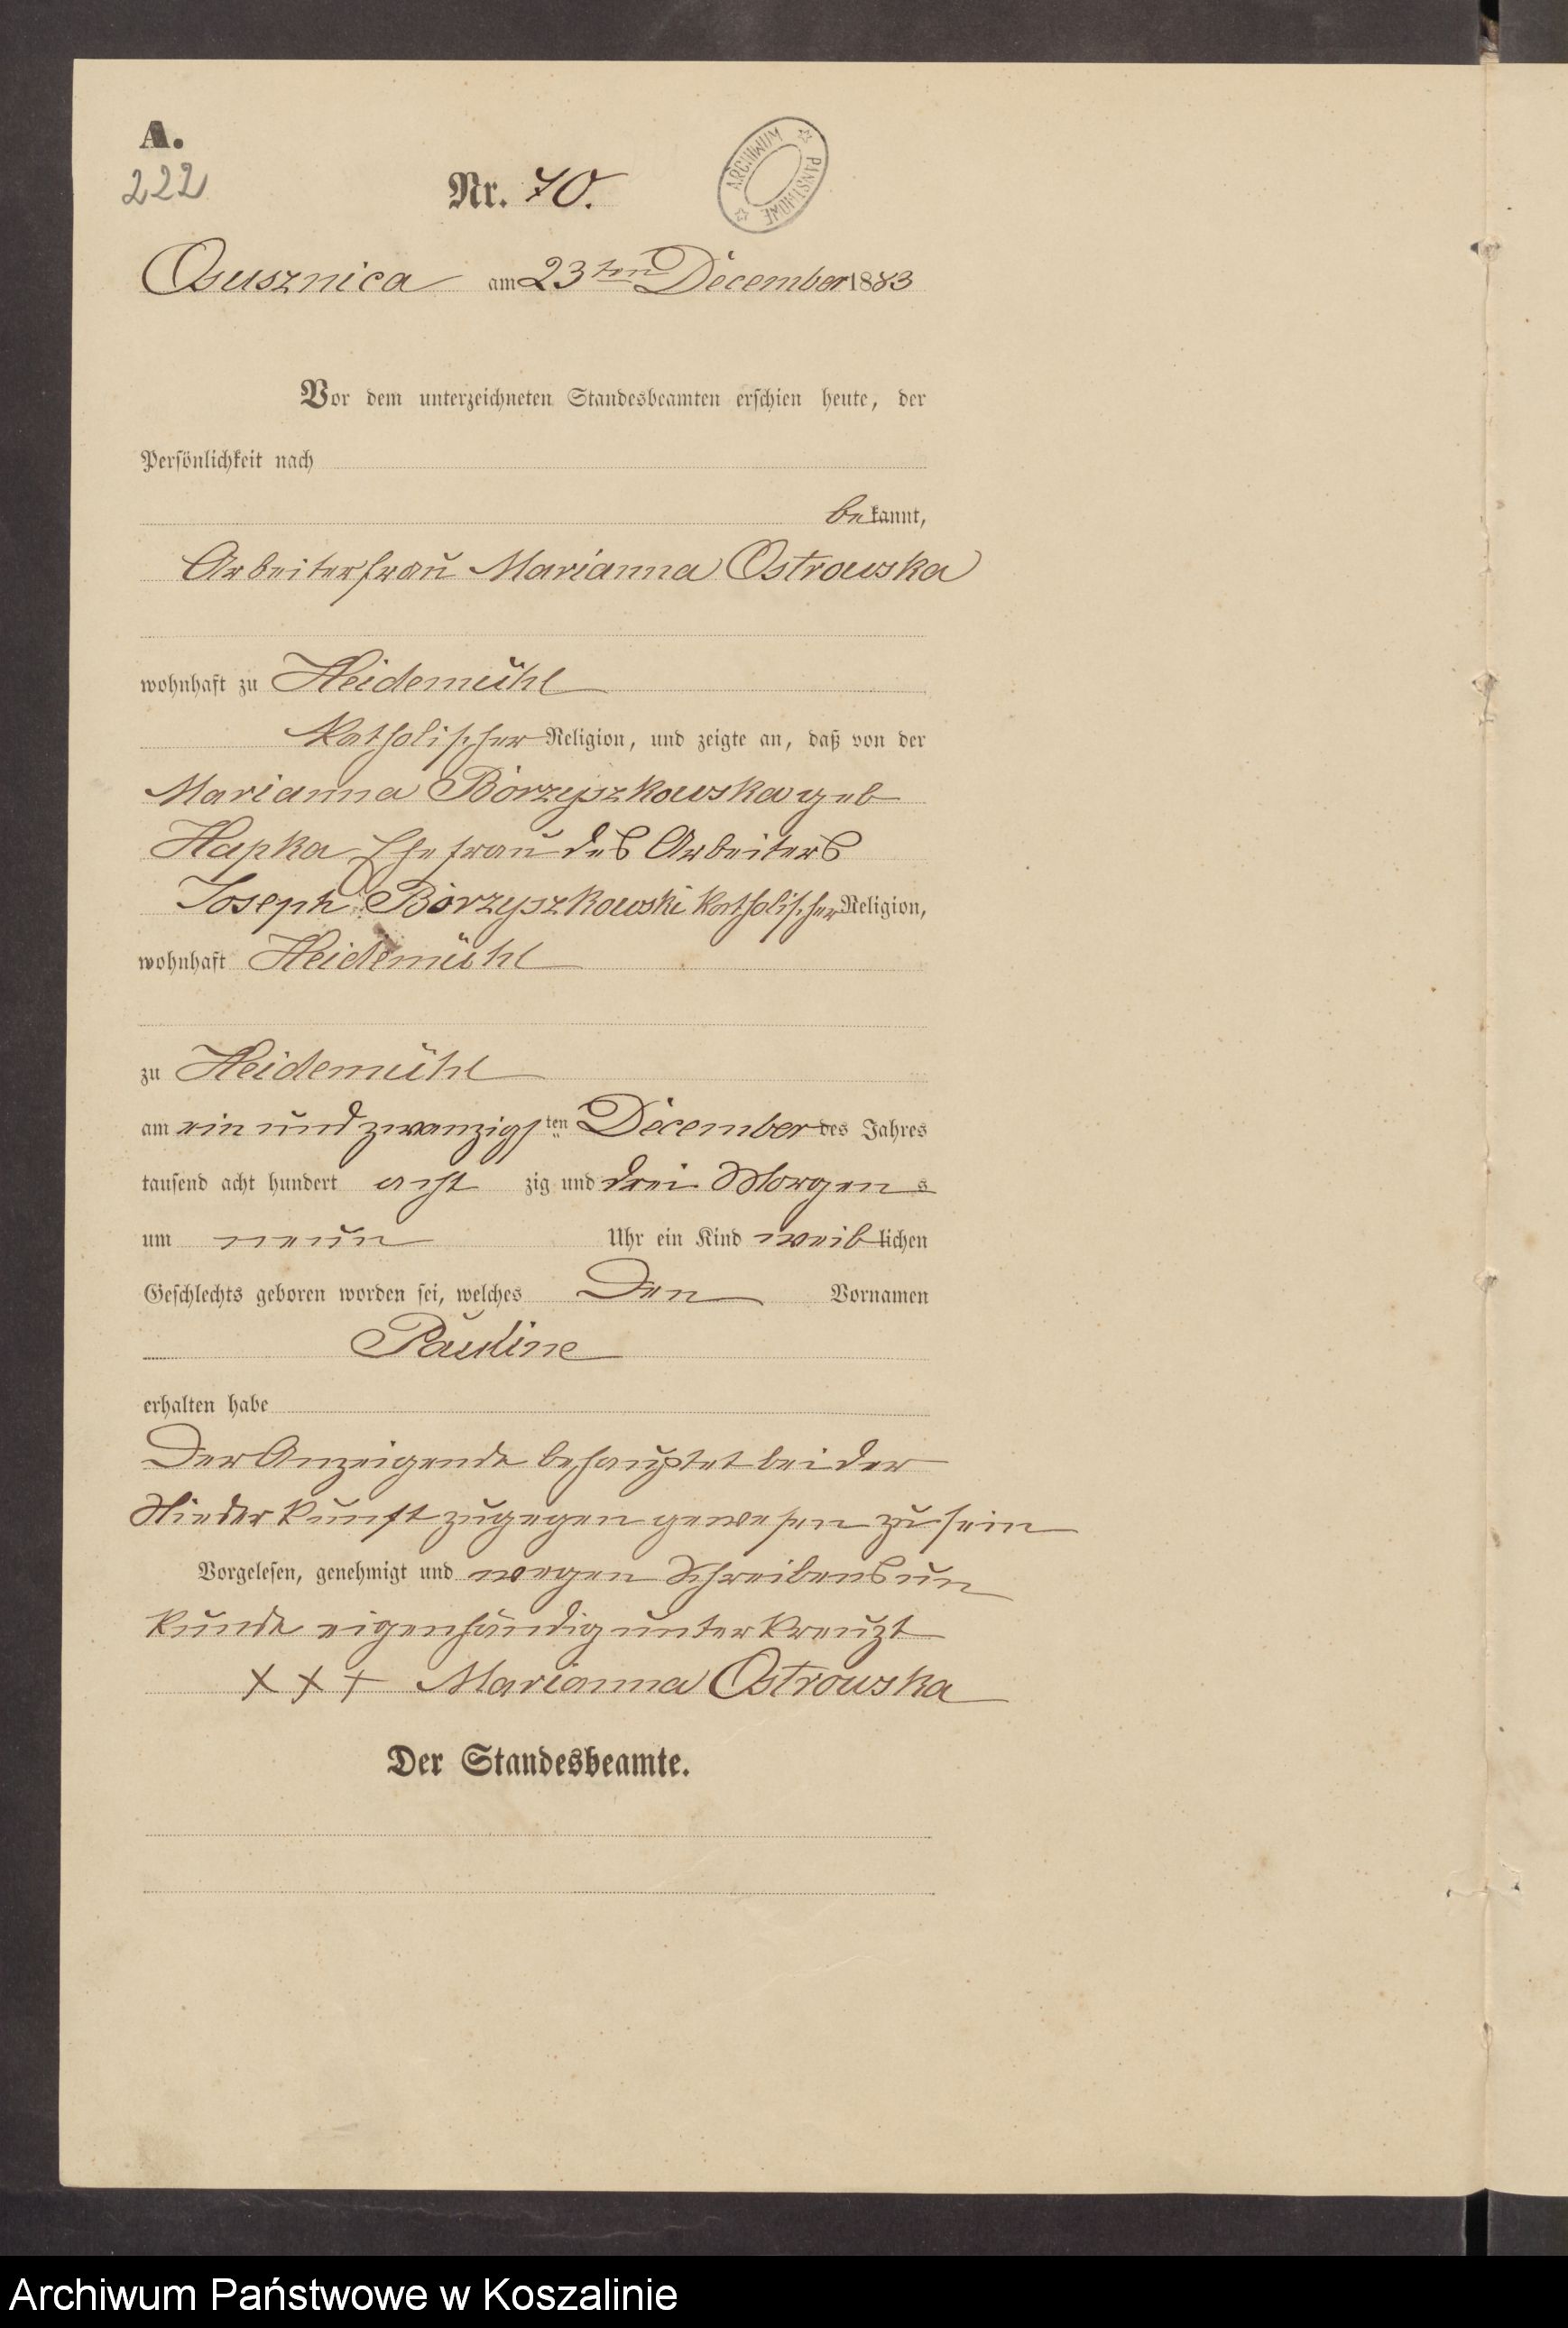 A.
222
Nr. 70.
ARCHIWUM PAŃSTWOWE
Osusznica am 23ten December 1883
Vor dem unterzeichneten Standesbeamten erschien heute, der
Persönlichkeit nach
bekannt,
Arbeiterfrau Marianna Ostrowska
wohnhaft zu Heidemühl
katholischer Religion, und zeigte an, daß von der
Marianna Borzyszkowska geb
Hapka Ehefrau des Arbeiters
Joseph Borzyszkowski katholischer Religion,
wohnhaft Heidemühl
zu Heidemühl
am ein und zwanzigsten December des Jahres
tausend acht hundert acht zig und drei Morgens
um neun Uhr ein Kind weiblichen
Geschlechts geboren worden sei, welches den Vornamen
Pauline
erhalten habe
Der Anzeigende behauptet bei der
Niederkunft zugegen gewesen zu sein
Vorgelesen, genehmigt und wegen Schreibensun
kunde eigenhändig unterkreuzt
+ + + Marianna Ostrowska
Der Standesbeamte.
Archiwum Państwowe w Koszalinie